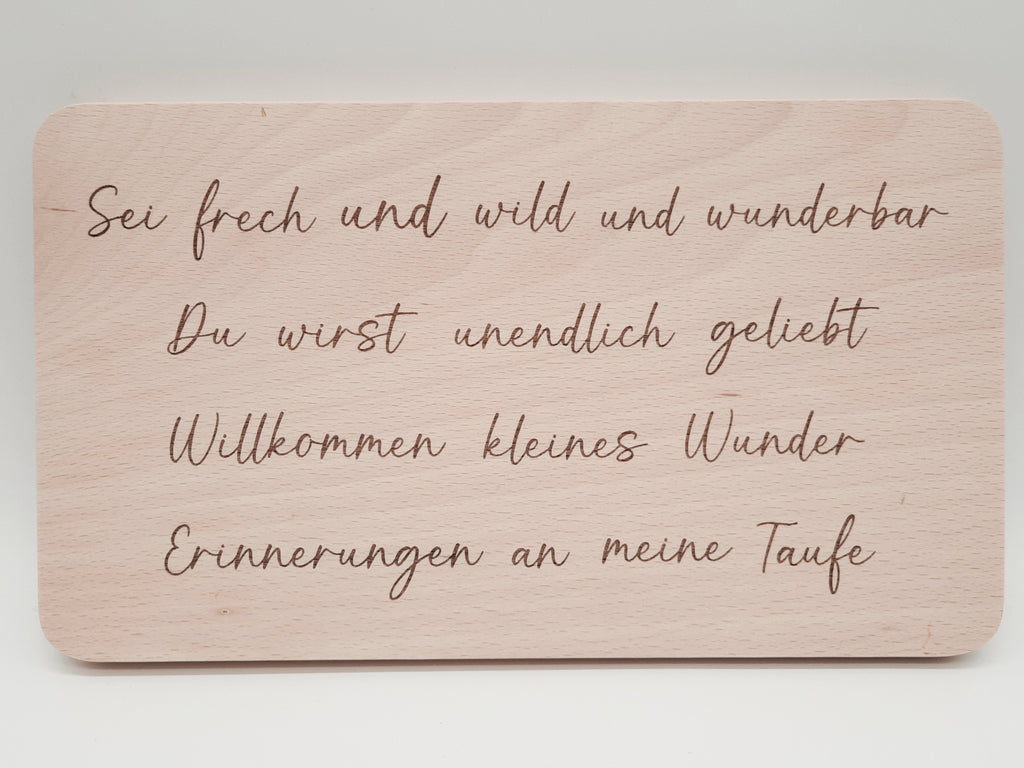 Sei frech und wild und wunderbar
Du wirst unendlich geliebt
Willkommen kleines Wunder
Erinnerungen an meine Taufe